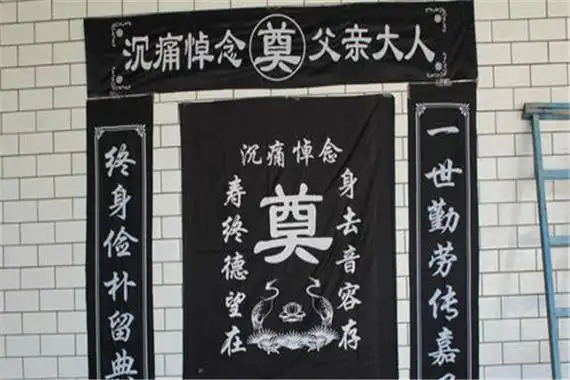 沉痛悼念奠父亲大人
一世勤劳传嘉
终身俭朴留典
沉痛悼念
奠
身去音容存
寿终德望在